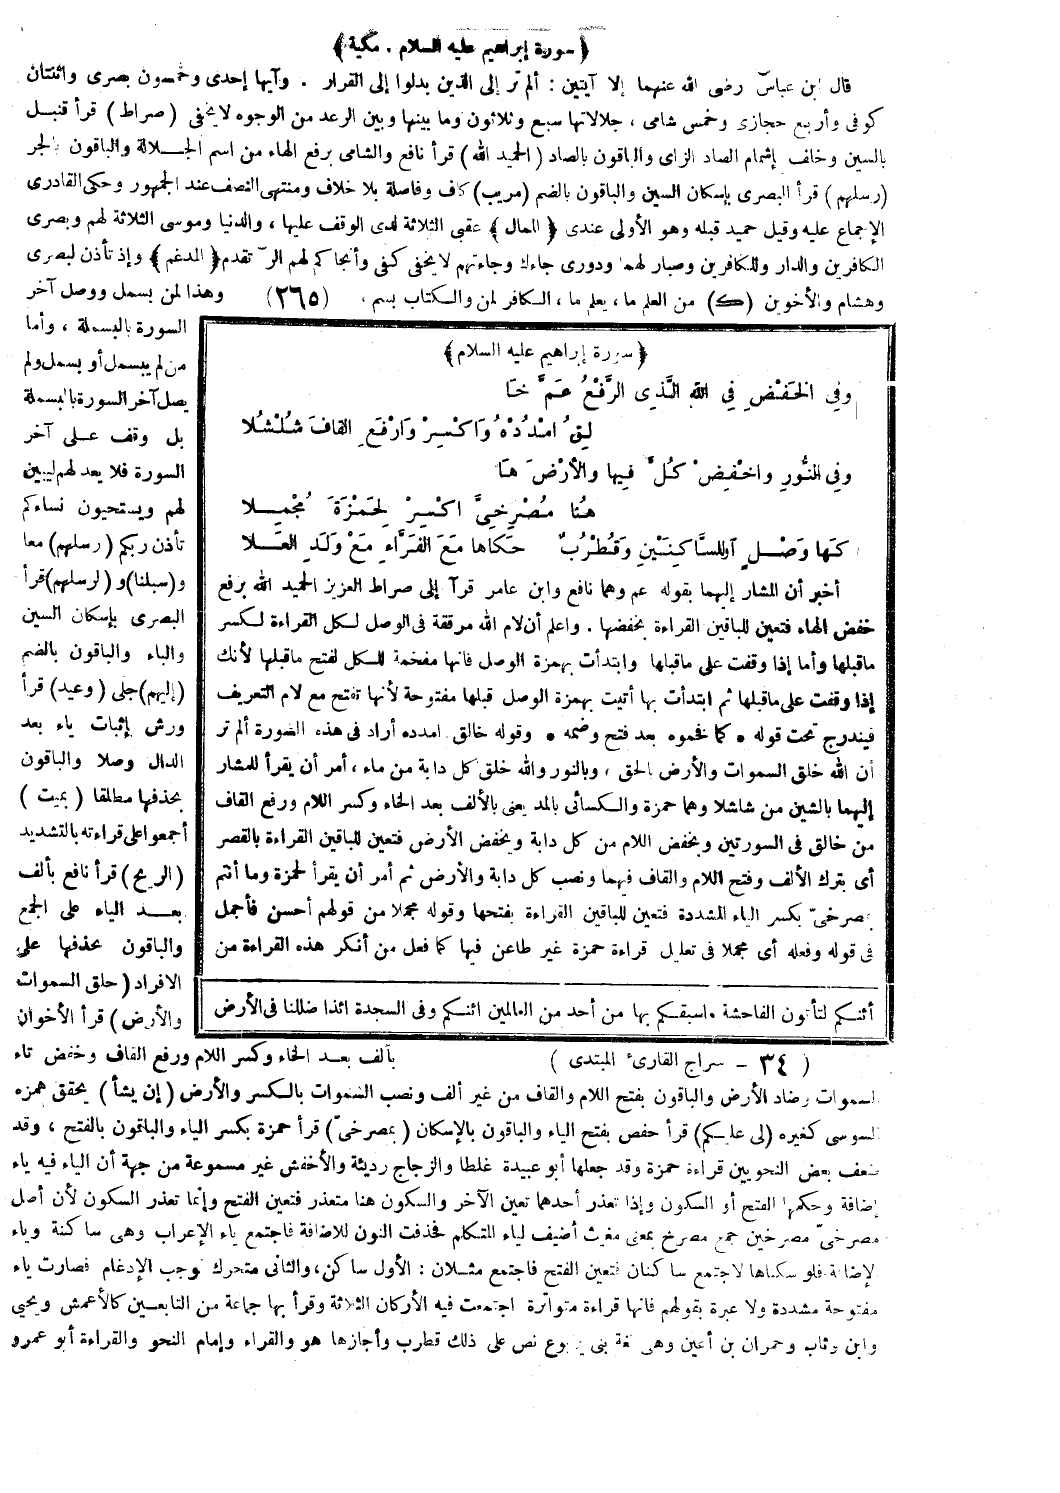 ﴿ سورة إبراهيم عليه السلام . مكية ﴾
قال ابن عباس رضى الله عنهما إلا آيتين : ألم تر إلى الذين بدلوا إلى القرار . وآيها إحدى وخمسون بصرى واثنتان
كوفى وأربع حجازى وخمس شامى ، جلالاتها سبع وثلاثون وما بينها وبين الرعد من الوجوه لا يخفى ( صراط ) قرأ قنبل
بالسين وخلف إشمام الصاد الزاى والباقون بالصاد ( الحميد الله ) قرأ نافع والشامى برفع الهاء من اسم الجلالة والباقون بالجر
( رسلهم ) قرأ البصرى بإسكان السين والباقون بالضم ( مريب ) كاف وفاصلة بلا خلاف ومنتهى النصف عند الجمهور وحكى القادرى
الإجماع عليه وقيل حميد قبله وهو الأولى عندى ﴿ الممال ﴾ عقبى الثلاثة لدى الوقف عليها ، والدنيا وموسى الثلاثة لهم وبصرى
الكافرين والدار وللكافرين وصبار لهما ودورى جاءك وجاءتهم لا يخفى كفى وأنجاكم لهم الر تقدم ﴿ المدغم ﴾ وإذ تأذن لبصرى
وهشام والأخوين ( ك ) من العلم ما ، يعلم ما ، الكافر لمن والكتاب بسم ، ( ٢٦٥ ) وهذا لمن بسمل ووصل آخر
السورة بالبسملة ، وأما
من لم يبسمل أو بسمل ولم
يصل آخر السورة بالبسملة
بل وقف على آخر
السورة فلا يعد لهم ليبين
لهم ويستحيون نساءكم
تأذن ربكم ( رسلهم ) معا
و ( سبلنا ) و ( لرسلهم ) قرأ
البصرى بإسكان السين
والباء والباقون بالضم
( إليهم ) جلى ( وعيد ) قرأ
ورش بإثبات ياء بعد
الدال وصلا والباقون
بحذفها مطلقا ( بميت )
أجمعوا على قراءته بالتشديد
( الريح ) قرأ نافع بألف
بعد الياء على الجمع
والباقون بحذفها على
الافراد ( خلق السموات
والأرض ) قرأ الأخوان
﴿ سورة إبراهيم عليه السلام ﴾
وفى الخَفْضِ فِي اللهِ الَّذِي الرَّفْعُ عَمَّ خَا
لِقُ امْدُدْهُ وَاكْسِرْ وَارْفَعِ القافَ شُلْشُلَا
وفى النُّورِ واخْفِضْ كُلَّ فِيها والأرْضَ هَا
هُنَا مُصْرِخِيَّ اكْسِرْ لِحَمْزَةَ مُجْمِلَا
كَهَا وَصْلٍ اوْ لِلسَّاكِنَيْنِ وَقُطْرُبٌ حَكَاها مَعَ الفَرَّاءِ مَعْ وَلَدِ العَلَا
أخبر أن المشار إليهما بقوله عم وهما نافع وابن عامر قرآ إلى صراط العزيز الحميد الله برفع
خفض الهاء فتعين للباقين القراءة بخفضها . واعلم أن لام الله مرققة فى الوصل لكل القراءة لكسر
ماقبلها وأما إذا وقفت على ماقبلها وابتدأت بهمزة الوصل فانها مفخمة للكل لفتح ماقبلها لأنك
إذا وقفت على ماقبلها ثم ابتدأت بها أتيت بهمزة الوصل قبلها مفتوحة لأنها تفتح مع لام التعريف
فيندرج تحت قوله * كما فخموه بعد فتح وضمه * وقوله خالق امدده أراد فى هذه السورة ألم تر
أن الله خلق السموات والأرض بالحق ، وبالنور والله خلق كل دابة من ماء ، أمر أن يقرأ للمشار
إليهما بالشين من شلشلا وهما حمزة والكسائى بالمد يعنى بالألف بعد الخاء وكسر اللام ورفع القاف
من خالق فى السورتين وبخفض اللام من كل دابة وبخفض الأرض فتعين للباقين القراءة بالقصر
أى بترك الألف وفتح اللام والقاف فيهما ونصب كل دابة والأرض ثم أمر أن يقرأ لحمزة وما أنتم
بمصرخىّ بكسر الياء المشددة فتعين للباقين القراءة بفتحها وقوله مجملا من قولهم أحسن فأجمل
فى قوله وفعله أى مجملا فى تعليل قراءة حمزة غير طاعن فيها كما فعل من أنكر هذه القراءة من
أئنكم لتأتون الفاحشة ماسبقكم بها من أحد من العالمين ائنكم وفى السجدة ائذا ضللنا فى الأرض
( ٣٤ - سراج القارئ المبتدى ) بألف بعد الخاء وكسر اللام ورفع القاف وخفض تاء
السموات وضاد الأرض والباقون بفتح اللام والقاف من غير ألف ونصب السموات بالكسر والأرض ( إن يشأ ) يحقق همزه
السوسى كغيره ( لى عليكم ) قرأ حفص بفتح الياء والباقون بالإسكان ( بمصرخىّ ) قرأ حمزة بكسر الياء والباقون بالفتح ، وقد
ضعف بعض النحويين قراءة حمزة وقد جعلها أبو عبيدة غلطا والزجاج رديئة والأخفش غير مسموعة من جهة أن الياء فيه ياء
إضافة وحكمها الفتح أو السكون وإذا تعذر أحدهما تعين الآخر والسكون هنا متعذر فتعين الفتح وإنما تعذر السكون لأن أصل
مصرخىّ مصرخين جمع مصرخ بمعنى مغيث أضيف لياء المتكلم فحذفت النون للاضافة فاجتمع ياء الإعراب وهى ساكنة وياء
الإضافة فلو سكناها لاجتمع ساكنان فتعين الفتح فاجتمع مثلان : الأول ساكن ، والثانى متحرك فوجب الإدغام فصارت ياء
مفتوحة مشددة ولا عبرة بقولهم فانها قراءة متواترة اجتمعت فيه الأركان الثلاثة وقرأ بها جماعة من التابعين كالأعمش ويحيى
وابن وثاب وحمران بن أعين وهى لغة بنى يربوع نص على ذلك قطرب وأجازها هو والفراء وإمام النحو والقراءة أبو عمرو